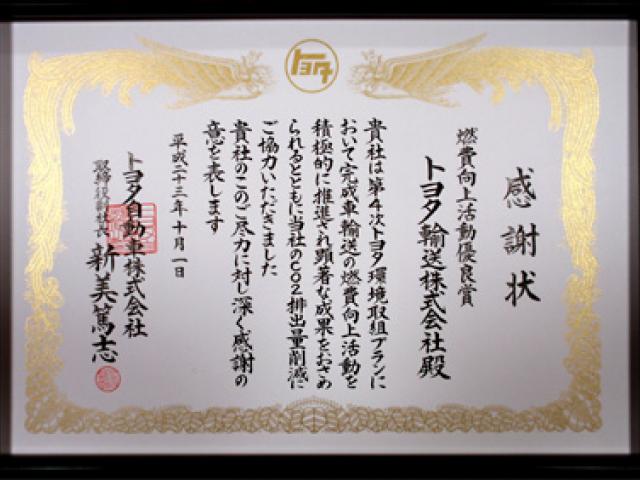 トヨタ
感謝状
燃費向上活動優良賞
トヨタ輸送株式会社殿
貴社は第4次トヨタ環境取組プランに
おいて完成車輸送の燃費向上活動を
積極的に推進され顕著な成果をおさめ
られるとともに当社のCO2排出量削減に
ご協力いただきました
貴社のこのご尽力に対し深く感謝の
意を表します
平成二十三年十月一日
トヨタ自動車株式会社
取締役副社長 新美篤志